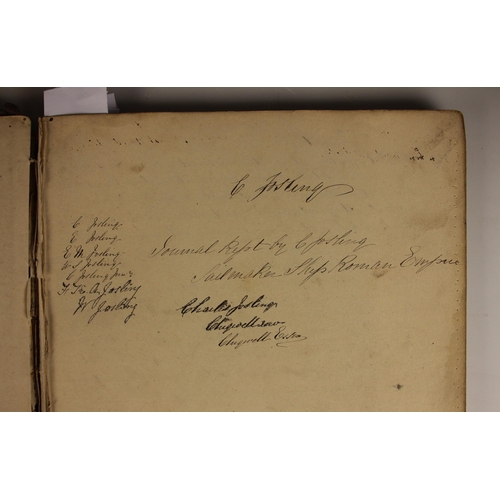 C Josling
C Josling
E Josling
E M Josling
W S Josling
C Josling Junr
A Josling
W Josling
Journal Kept by C Josling
Sailmaker Ship Roman Empire
Charles Josling
Chigwell row
Chigwell Essex